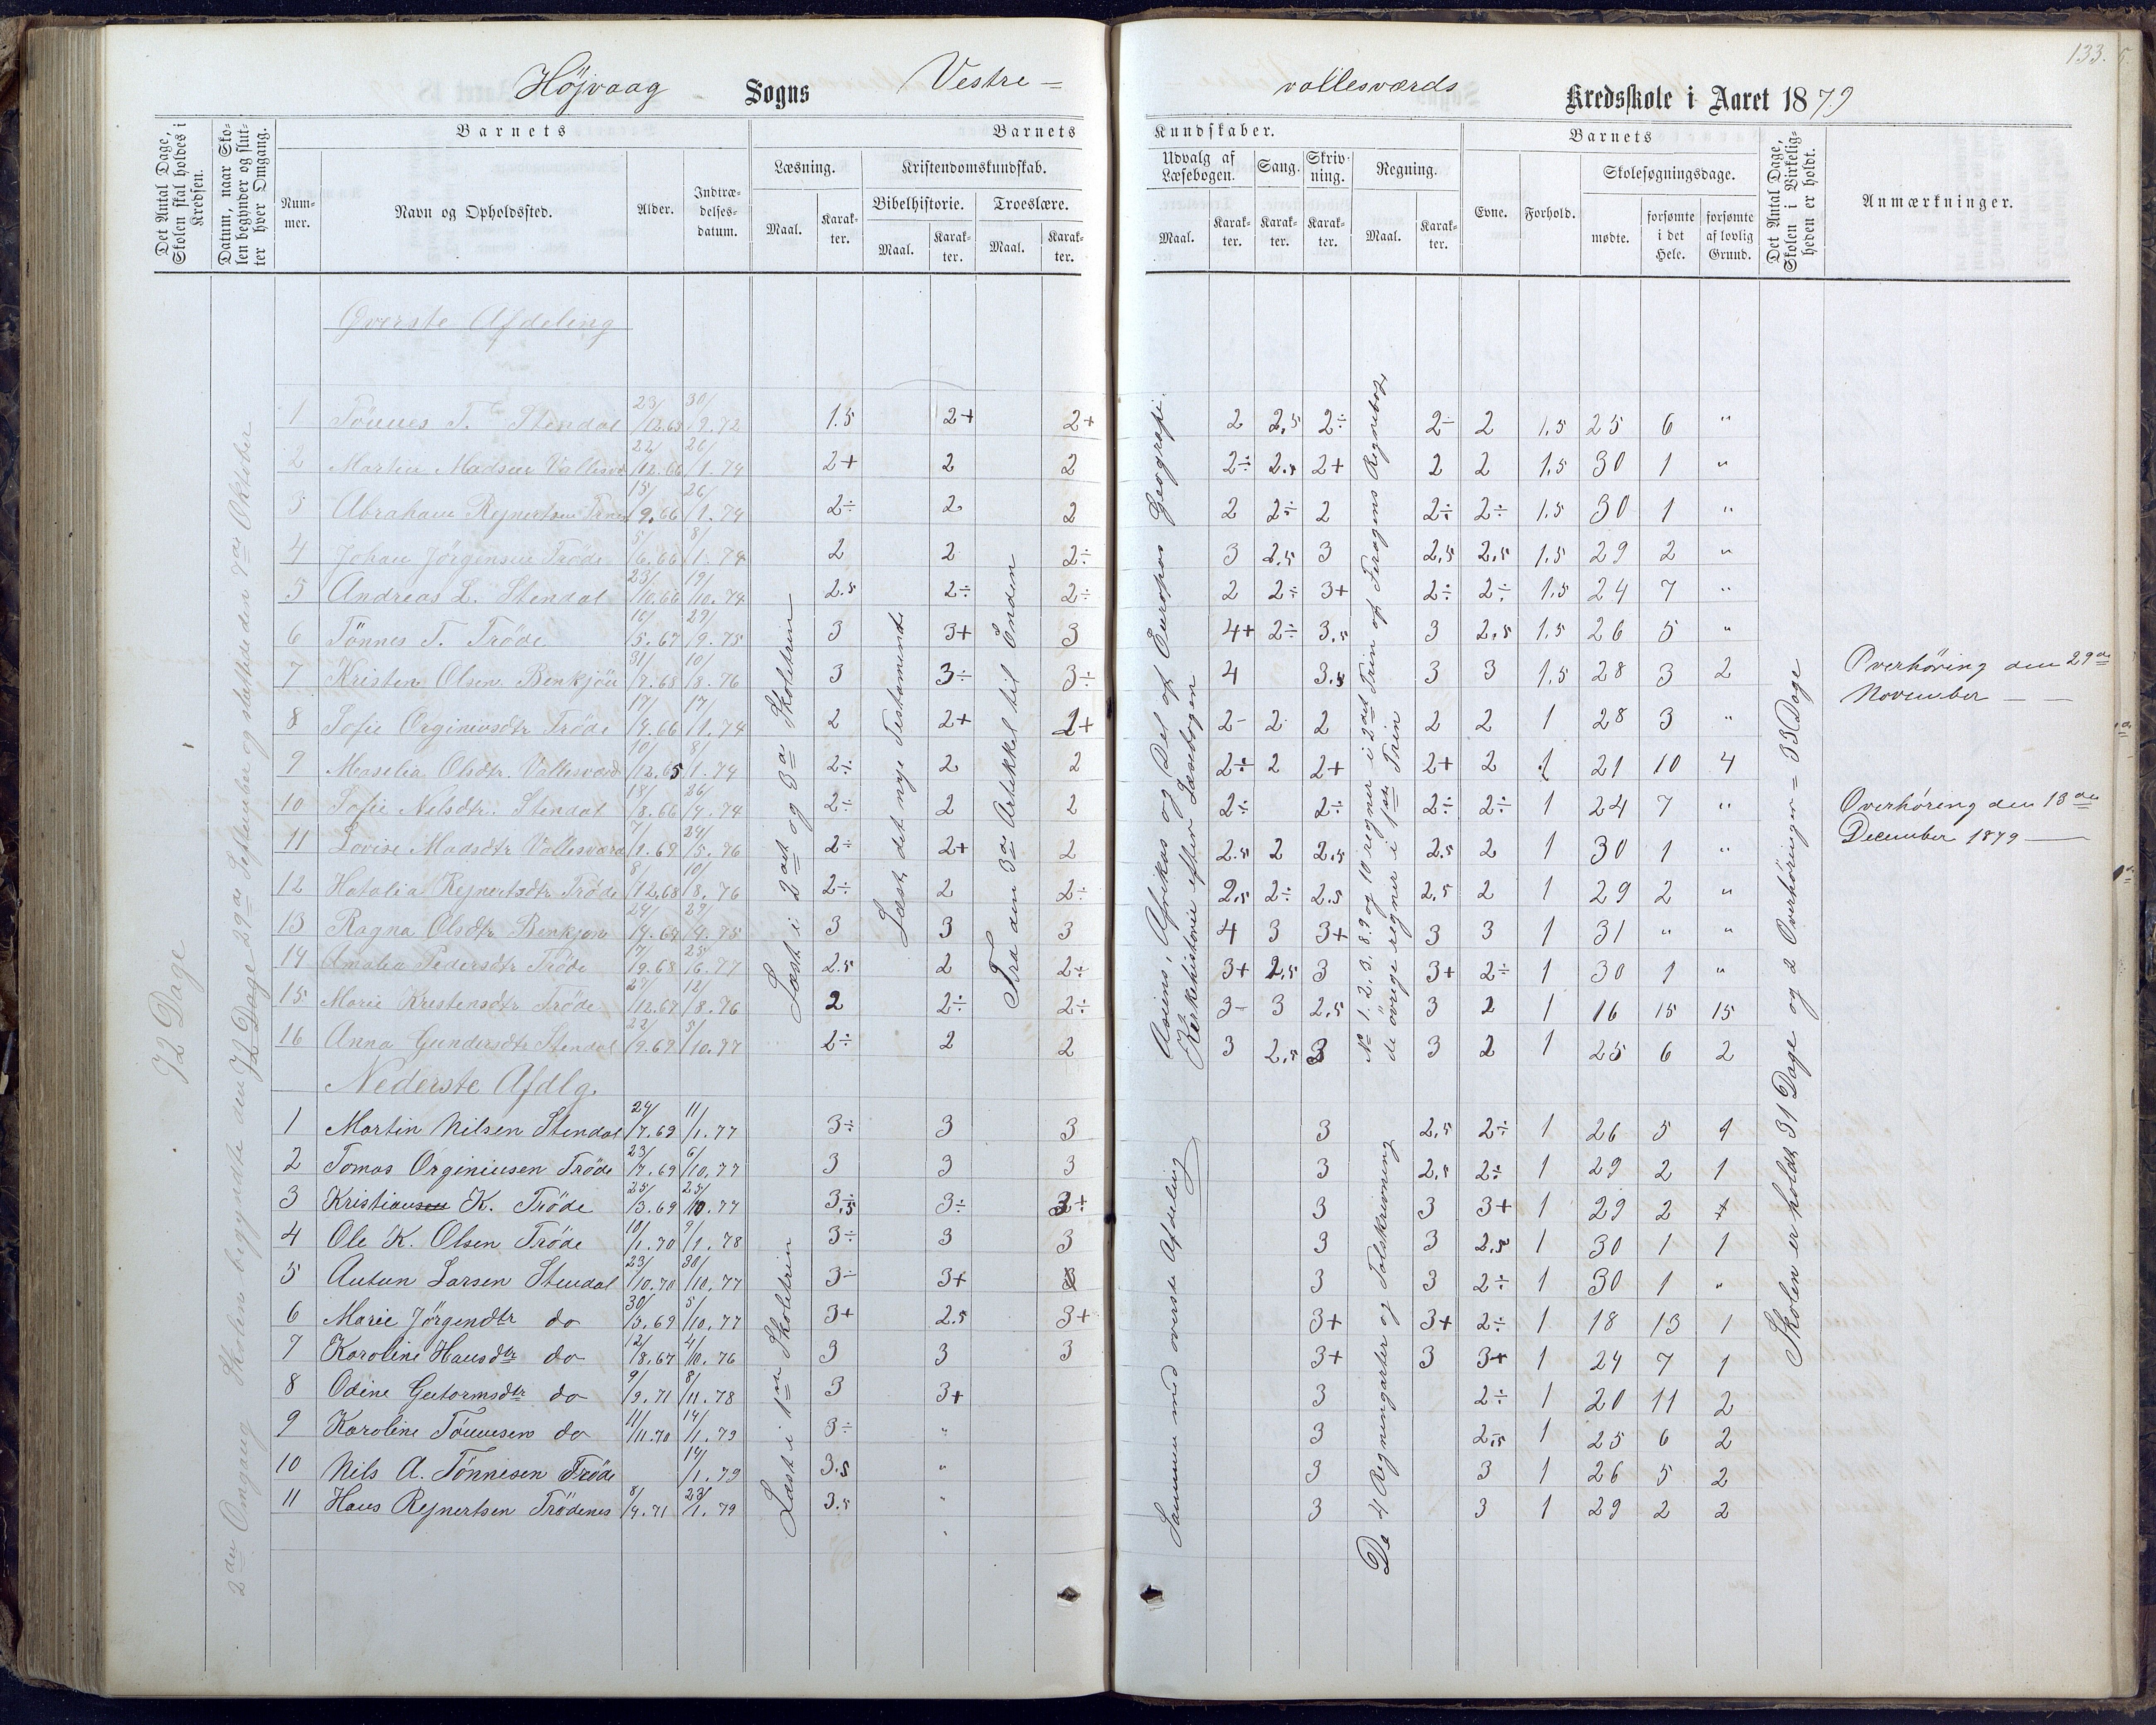 133.
Højvaag Sogns Vestre =
vallesværds Kredsskole i Aaret 1879
Det Antal Dage, Skolen skal holdes i Kredsen.
Datum, naar Skolen begynder og slutter hver Omgang.
Barnets
Barnets
Kundskaber.
Barnets
Det Antal Dage, Skolen i Virkeligheden er holdt.
Anmærkninger.
Nummer.
Navn og Opholdssted.
Alder.
Indtrædelsesdatum.
Læsning.
Kristendomskundskab.
Bibelhistorie.
Troeslære.
Maal.
Karakter.
Maal.
Karakter.
Maal.
Karakter.
Udvalg af Læsebogen.
Sang.
Skrivning.
Regning.
Evne.
Forhold.
Skolesøgningsdage.
Maal.
Karakter.
Karakter.
Karakter.
Maal.
Karakter.
mødte.
forsømte i det Hele.
forsømte af lovlig Grund.
72 Dage
2den Omgang Skolen begyndte den 29de September og sluttede den 8de Oktober
Læst i 2det og 3de Skoletrin
Læst det nye Testamente
Fra den 3de Artikkel til Enden
Asiens, Afrikas og Del af Europas Geografi.
Kirkehistorie efter Læsebogen
No 1. 2. 3. 8. 9 og 10 regner i 2det Trin af Regnebog,
de øvrige regner i 1ste Trin
Skolen er holdt 31 Dage og 2 Overhøringer = 33 Dage
Øverste Afdeling
1 Tönnes T. Stendal 23/12.65 30/9.72 1.5 2+ 2+ 2 2,5 2÷ 2÷ 2 1,5 25 6 "
2 Martin Madsen Vallesvd 22/12.66 26/1.74 2+ 2 2 2÷ 2,5 2+ 2 2 1,5 30 1 "
3 Abraham Rejnertsen 15/9.66 26/1.74 2÷ 2 2 2 2÷ 2 2÷ 2÷ 1,5 30 1 "
4 Johan Jörgensen Tröde 5/6.66 8/1.74 2 2 2÷ 3 2,5 3 2,5 2,5 1,5 29 2 "
5 Andreas L. Stendal 23/10.66 19/10.74 2.5 2÷ 2÷ 2 2÷ 3+ 2÷ 2÷ 1,5 24 7 "
6 Tönnes T. Tröde 5.67 29/9.75 3 3+ 3 4+ 2÷ 3,5 3 2,5 1,5 26 5 "
7 Kristen Olsen Benkjön 31/7.68 10/8.76 3 3÷ 3÷ 4 3,5 3 3 1,5 28 3 2
8 Sofie Orginiusdtr Tröde 17/4.66 17/1.74 2 2+ 2+ 2- 2 2 2 2 1 28 3 "
9 Maselia Olsdtr. Vallesværd 10/12.65 8/1.74 2÷ 2 2 2÷ 2 2+ 2+ 2 1 21 10 4
10 Sofie Nilsdtr. Stendal 18/8.66 26/4.74 2÷ 2 2 2÷ 2÷ 2÷ 2÷ 1 24 7 "
11 Lovise Madsdtr Vallesværd 7/1.69 24/5.76 2÷ 2+ 2 2.5 2 2,5 2.5 2 1 30 1 "
12 Hatalia Rejnertsdtr Tröde 8/12.68 10/8.76 2÷ 2 2÷ 2,5 2÷ 2.5 2,5 2 1 29 2 "
13 Ragna Olsdtr Benkjön 3 3 3 4 3 3+ 3 3 1 31 " "
14 Amalia Pedersdtr Tröde 2.5 2 2÷ 3+ 2,5 3 3+ 2÷ 1 30 1 "
15 Marie Kristensdtr Tröde 27/12.67 12/8.76 2 2÷ 2÷ 3- 3 2,5 3 2 1 16 15 15
16 Anna Gundersdtr Stendal 22/9.67 5/10.77 2÷ 2 2 3 2,5 3 3 2 1 25 6 2
Nederste Afdlg.
Læst i 1ste Skoletrin
Sammen med øverste Afdeling
De 4 Regningarter og Talskrivning
1 Martin Nilsen Stendal 24/7.69 11/1.77 3÷ 3 3 3 2,5 2÷ 1 26 5 1
2 Tomas Orginiusen Tröde 23/7.69 6/10.77 3 3 3 3 2,5 2÷ 1 29 2 1
3 Kristiansen K. Tröde 25/3.69 25/10.77 3,5 3÷ 3÷ 3 3 3+ 1 29 2
4 Ole K. Olsen Tröde 10/1.70 9/1.78 3÷ 3 3 3 3 2,5 1 30 1 1
5 Antun Larsen Stendal 23/10.70 30/10.77 3÷ 3+ 3 3 3 2÷ 1 30 1 "
6 Marie Jörgendtr do 30/3.69 5/10.77 3+ 2.5 3+ 3+ 3+ 2÷ 1 18 13 1
7 Karoline Hansdtr do 12/8.67 4/10.76 3 3 3 3+ 3 3+ 1 24 7 1
8 Odine Gutormsdtr do 9/9.71 8/11.78 3 3+ 3 2÷ 1 20 11 2
9 Karoline Tönnesen do 11/11.70 14/1.79 3÷ " 3 2,5 1 25 6 2
10 Nils A. Tönnesen Tröde 14/1.79 3.5 " 3 3 1 26 5 2
11 Hans Rejnertsen Trödenes 8/4.71 23/1.79 3.5 " 3 3 1 29 2 2
Overhøring den 29de
November
Overhøring den 13de
December 1879